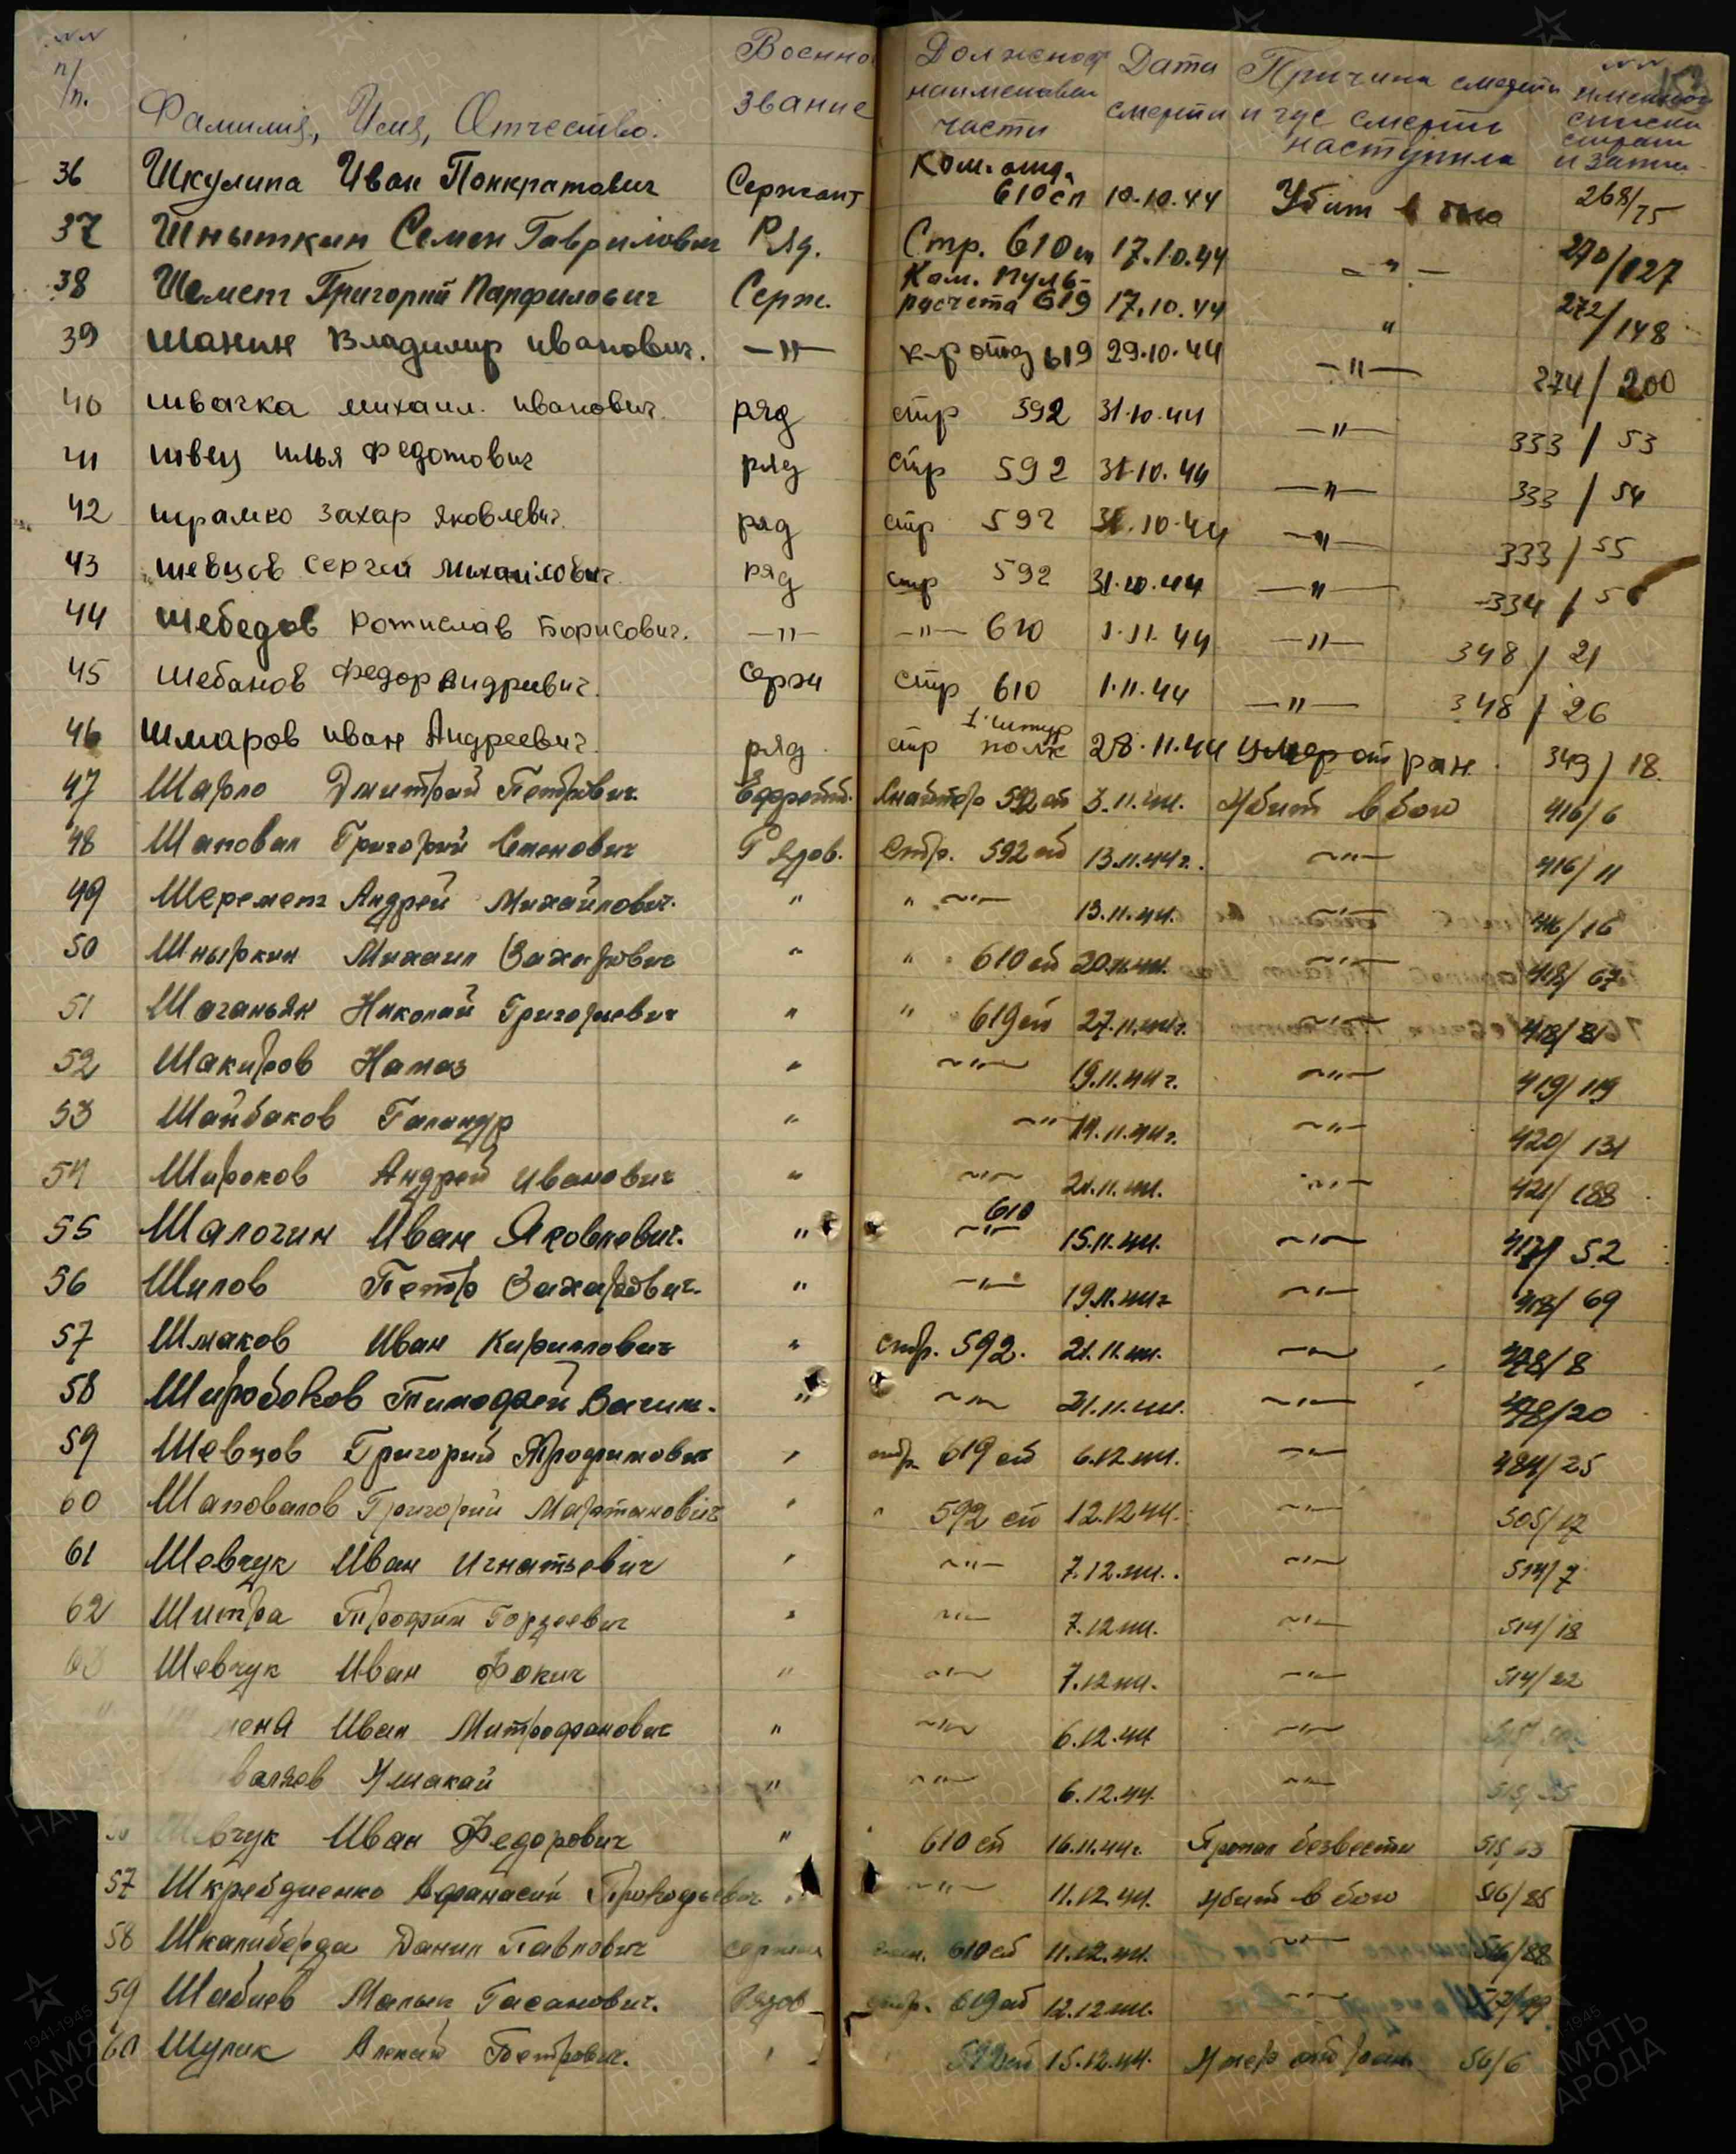 №№ п/п. Фамилия, Имя, Отчество. Военно звание Должност наименован части Дата смерти Причина смерти и где смерть наступила №№ именной списки страш и запис.
36 Шкулипа Иван Понкратович Сержант Ком. отд. 610 сп 10.10.44 Убит в бою 268/75
37 Шныткин Семен Гаврилович Ряд. Стр. 610 сп 17.10.44 - " - 270/127
38 Шемет Григорий Парфилович Серж. Ком. пуль-расчета 619 17.10.44 " 272/148
39 Шанин Владимир Иванович. -"- к-р отд 619 29.10.44 -"- 274/200
40 Швачка Михаил. Иванович. ряд стр 392 31.10.44 -"- 333/53
41 Швец Илья Федотович ряд стр 592 31.10.44 -"- 333/54
42 Шрамко Захар Яковлевич. ряд стр 592 31.10.44 -"- 333/55
43 Шевцов Сергей Михайлович ряд стр 592 31.10.44 -"- 334/56
44 Шебедов Ротислав Борисович. -"- -"- 610 1.11.44 -"- 348/21
45 Шебанов Федор Андревич. серж стр 610 1.11.44 -"- 348/26
46 Шмаров Иван Андреевич. ряд стр 1 штур полк 28.11.44 умер от ран. 349/18
47 Шарло Дмитрий Петрович. Ефрейт. Снайпер 592 сп 3.11.44. Убит в бою 416/6
48 Шаповал Григорий Семенович Рядов. Стр. 592 сп 13.11.44г. -"- 416/11
49 Шеремет Андрей Михайлович. " " -"- 13.11.44. -"- 416/16
50 Шныркин Михаил Захарович " " 610 сп 20.11.44. -"- 418/67
51 Шаганьян Николай Григорьевич " " 619 сп 27.11.44г. -"- 418/81
52 Шакиров Намаз " -"- 19.11.44г. -"- 419/119
53 Шайбаков Галандр " -"- 19.11.44г. -"- 420/131
54 Широков Андрей Иванович " -"- 21.11.44. -"- 421/188
55 Шалогин Иван Яковлевич. " 610 -"- 15.11.44. -"- 417/52
56 Шилов Петр Захарович. " -"- 19.11.44г -"- 418/69
57 Шмаков Иван Кириллович " стр. 592. 21.11.44. -"- 478/8
58 Широбоков Тимофей Васил. " -"- 21.11.44. -"- 478/20
59 Шевцов Григорий Трофимович " стр. 619 сп 6.12.44. -"- 484/25
60 Шаповалов Григорий Мартынович " " 592 сп 12.12.44. -"- 505/17
61 Шевчук Иван Игнатьевич " -"- 7.12.44. -"- 514/7
62 Шитра Трофим Гордеевич " -"- 7.12.44. -"- 514/18
63 Шевчук Иван Фокич " -"- 7.12.44. -"- 514/22
Иван Митрофанович " -"- 6.12.44 -"-
Умакай " -"- 6.12.44. -"-
Шевчук Иван Федорович " " 610 сп 16.11.44г. Пропал безвести 515/63
57 Шкребдиенко Афанасий Прокофьевич " -"- 11.12.44. Убит в бою 516/85
58 Шкалиберда Данил Павлович сержан 610 сп 11.12.44. -"- 516/88
59 Шабиев Малык Гасанович. Рядов стр. 619 сп 12.12.44. -"-
60 Шулик Алексей Петрович. " 592 сп 15.12.44. Умер от ран. 56/6